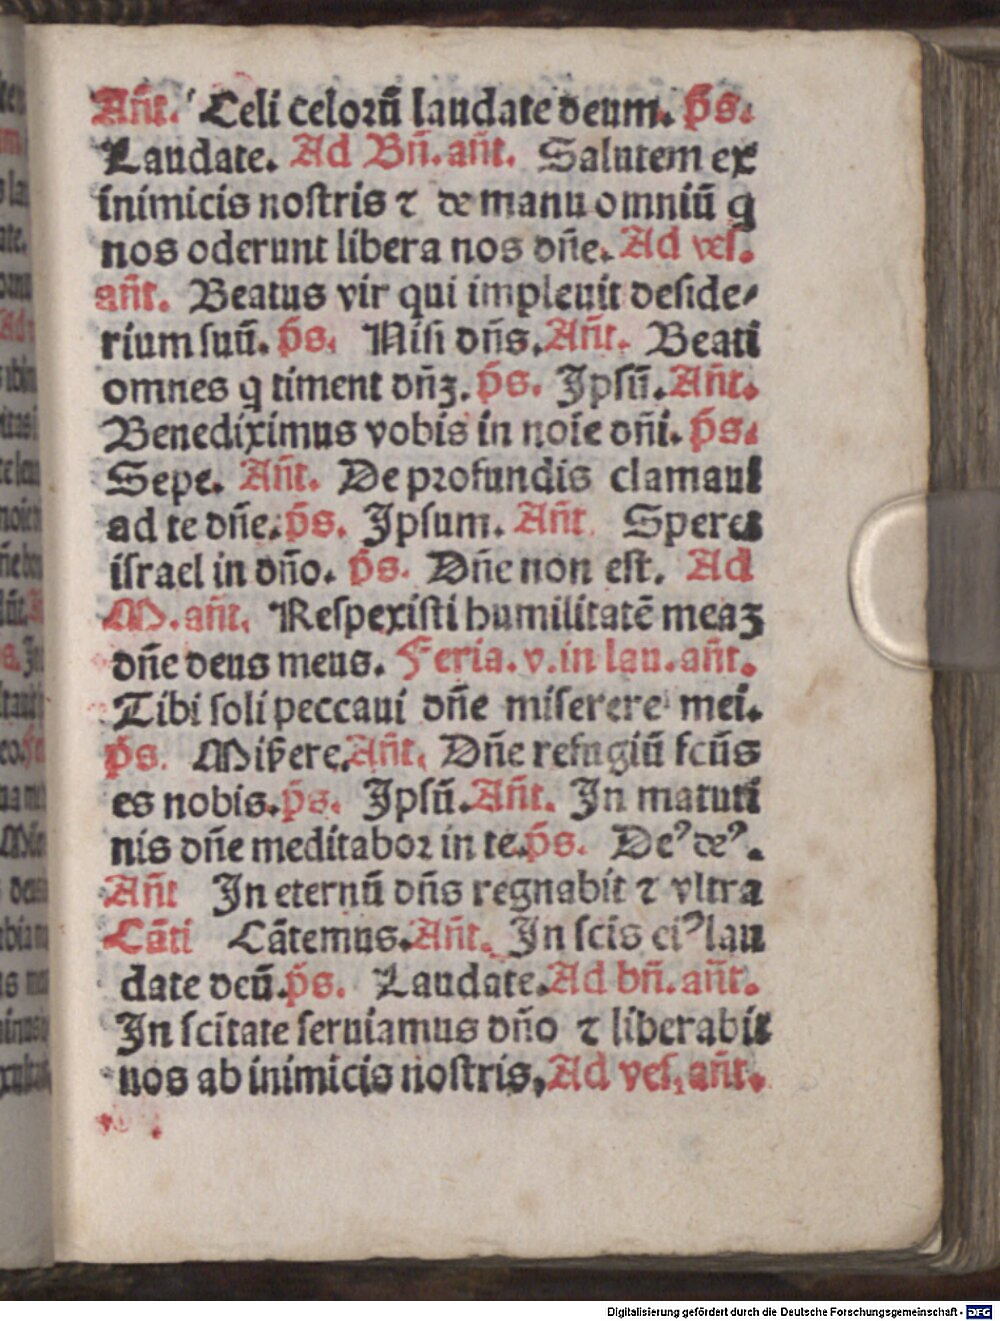 Añt. Celi celorū laudate deum. p̄s.
Laudate. Ad Bñ. añt. Salutem ex
inimicis nostris ⁊ de manu omniū q
nos oderunt libera nos dñe. Ad ves.
añt. Beatus vir qui impleuit deside⸗
rium suū. p̄s. Nisi dñs. Añt. Beati
omnes q timent dñꝫ. p̄s. Ipsū. Añt.
Benediximus vobis in noie dñi. p̄s.
Sepe. Añt. De profundis clamaui
ad te dñe. p̄s. Ipsum. Añt Speret
israel in dño. p̄s. Dñe non est. Ad
M. añt. Respexisti humilitatē meaꝫ
dñe deus meus. Feria. v. in lau. añt.
Tibi soli peccaui dñe miserere mei.
p̄s. Miẜere. Añt. Dñe refugiū fcūs
es nobis. p̄s. Ipsū. Añt. In matuti
nis dñe meditabor in te. p̄s. Deꝰ deꝰ.
Añt In eternū dñs regnabit ⁊ vltra
Cāti Cātemus. Añt. In scis eiꝰ lau
date deū. p̄s. Laudate. Ad bñ. añt.
In scītate seruiamus dño ⁊ liberabit
nos ab inimicis nostris, Ad ves. añt.
Digitalisierung gefördert durch die Deutsche Forschungsgemeinschaft - DFG